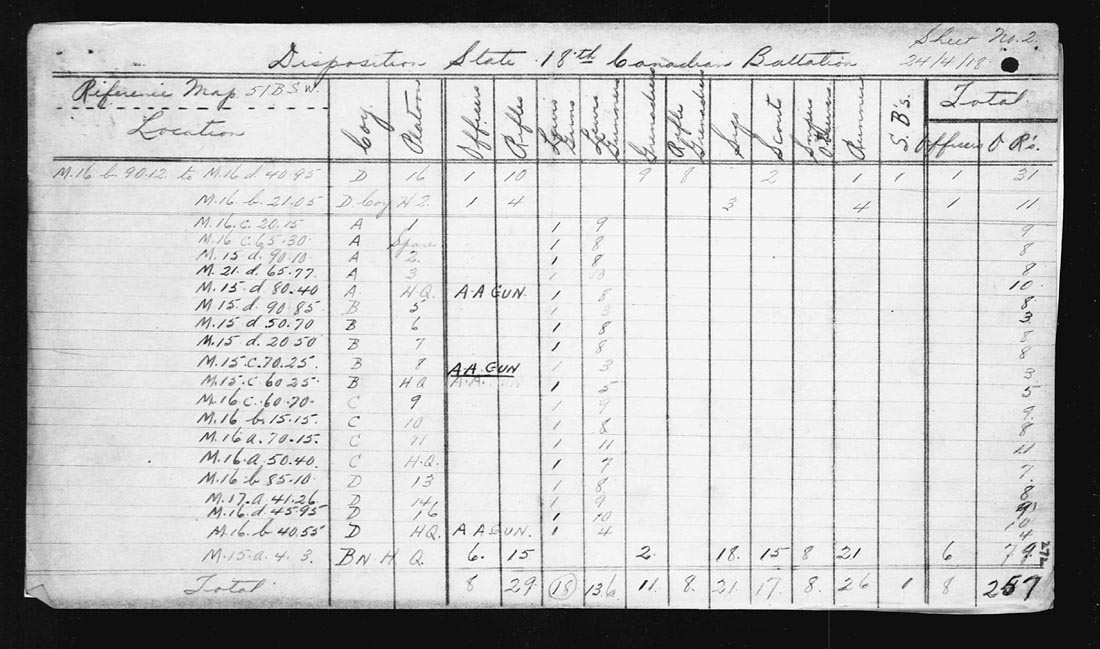 Sheet No. 2.
Disposition State 18th Canadian Battalion 24/4/18
Reference Map 51B S.W.
Location Coy Platoons Officers Rifles Lewis Guns Lewis Gunners Grenadiers Rifle Grenadiers Sigs Scouts Snipers Observers Runners S.B's. Total
Officers O R's.
M.16 b. 90.12. to M.16 d. 40.95 D 16 1 10 9 8 2 1 1 1 31
M.16 b. 21.05 D. Coy H.2. 1 4 3 4 1 11
M.16. c. 20.15 A 1 1 9 9
M.16 c. 65.30 A Spare 1 8 8
M.15 d. 90.10 A 2 1 8 8
M. 21 d. 65.77 A 3 1 10 10
M.15 d. 80.40 A H.Q. A.A GUN. 1 8 8
M 15 d. 90.85 B 5 1 3 3
M.15 d 50.70 B 6 1 8 8
M.15 d. 20.50 B 7 1 8 8
M.15 C. 70.25. B 8 A.A. GUN 1 3 3
M.15. C 60 25. B H Q A.A. GUN 1 5 5
M.16 C. 60.70. C 9 1 9 9
M.16 b. 15.15. C 10 1 8 8
M.16 a. 70.15. C 11 1 11 11
M.16.a. 50.40. C H.Q. 1 7 7.
M.16 b 85.10 D 13 1 8 8
M.17.a. 41.26 D 14 1 9 9
M.16.d. 45.95 D 16 1 10 10
M.16.b 40.55 D HQ. A A GUN. 1 4 4
M.15.a. 4. 3. BN H Q. 6. 15 2. 18. 15 8 21 6 79. 272
Total 8 29. 18 136. 11. 8. 21. 17. 8. 26 1 8 257